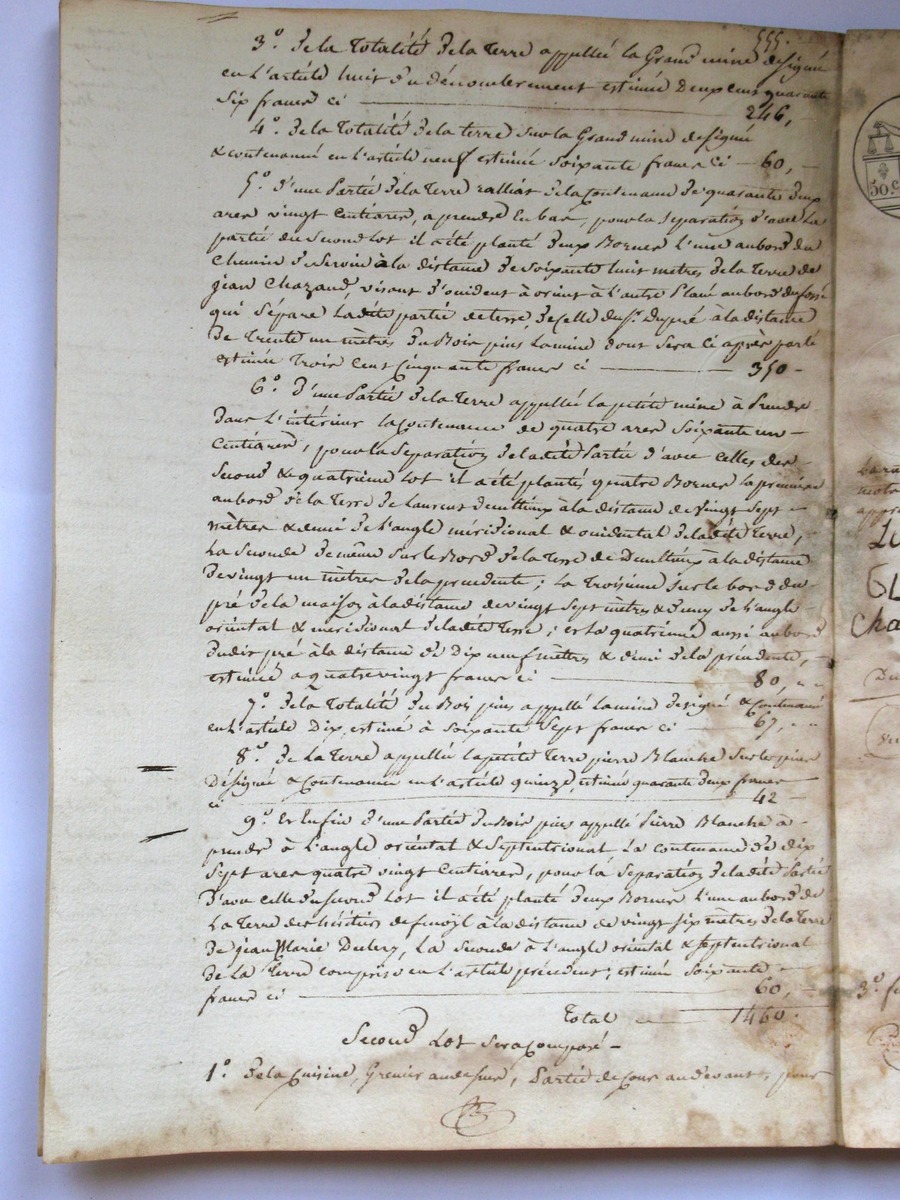 555.
3°. De la Totalité De la Terre appellée la Grand mine designée
en l'article huit du dénombrement estimée Deux cent quarante
Six francs ci — 246, -
4°. De la Totalité De la terre sur la Grand mine designée
& contenance en l'article neuf estimée Soixante francs ci — 60, -
5°. D'une Partie De la Terre De la Contenance De quarante Deux
ares vingt Centiares, a prendre En bas, pour la separation D'avec La
partie du Second Lot il a été planté Deux Bornes L'une au bord du
Chemin De à la distance De Soixante huit mètres De la Terre de
jean Chazaud, visant D'occident à orient à l'autre Placée au bord du fossé
qui Sépare Ladite partie de terre, De celle du Sr. Dupré à la distance
De Trente un mètres Du Bois pins Lamine dont Sera Ci après parlé
estimée Trois Cent Cinquante francs ci — 350 -
6°. D'une Partie De la Terre appellée la petite mine à Prendre
Dans L'intérieur la Contenance de quatre ares Soixante un
Centiares, pour la Separation De ladite Partie D'avec celles des
Second & quatrième Lot il a été plantés quatre Bornes la première
au bord De la Terre De Laurent à la distance de vingt Sept
mètres & demi De L'angle méridional & occidental De ladite Terre,
La Seconde De même Sur le Bord De la Terre de à la distance
De vingt un mètres De la précédente ; La Troisième Sur le bord du
pré De la maison à la distance de vingt Sept mètres & Demy De L'angle
oriental & méridional De ladite Terre ; et La quatrième aussi au bord
Dudit pré à la distance De Dix neuf mètres & demi De la précédente,
estimée a quatre vingt francs ci — 80, " "
7°. De la Totalité Du Bois pins appellé Lamine Designé & Contenance
en L'article Dix, estimé à Soixante Sept francs ci — 67, " "
8°. De La Terre appellée la petite Terre pierre Blanche Sur les pins
Désignée & Contenance en L'article quinze, estimée quarante Deux francs
ci — 42 -
9°. Et Enfin D'une Partie Du Bois pins appellé Pierre Blanche à
prendre à L'angle oriental & Septentrional La contenance De dix
Sept ares quatre vingt Centiares, pour la Separation De ladite Partie
D'avec celle du Second Lot il a été planté Deux Bornes L'une au bord de
La Terre des héritiers à la distance de vingt Six mètres De la Terre
De jean Marie La Seconde à L'angle oriental & Septentrional
De la Terre comprise en L'article précédent ; estimée Soixante
francs ci — 60, -
Total — 1460.
Second Lot Sera Composé —
1°. De la Cuisine, Grenier au dessus, Partie de Cour au devant, pour
50 c
3°.